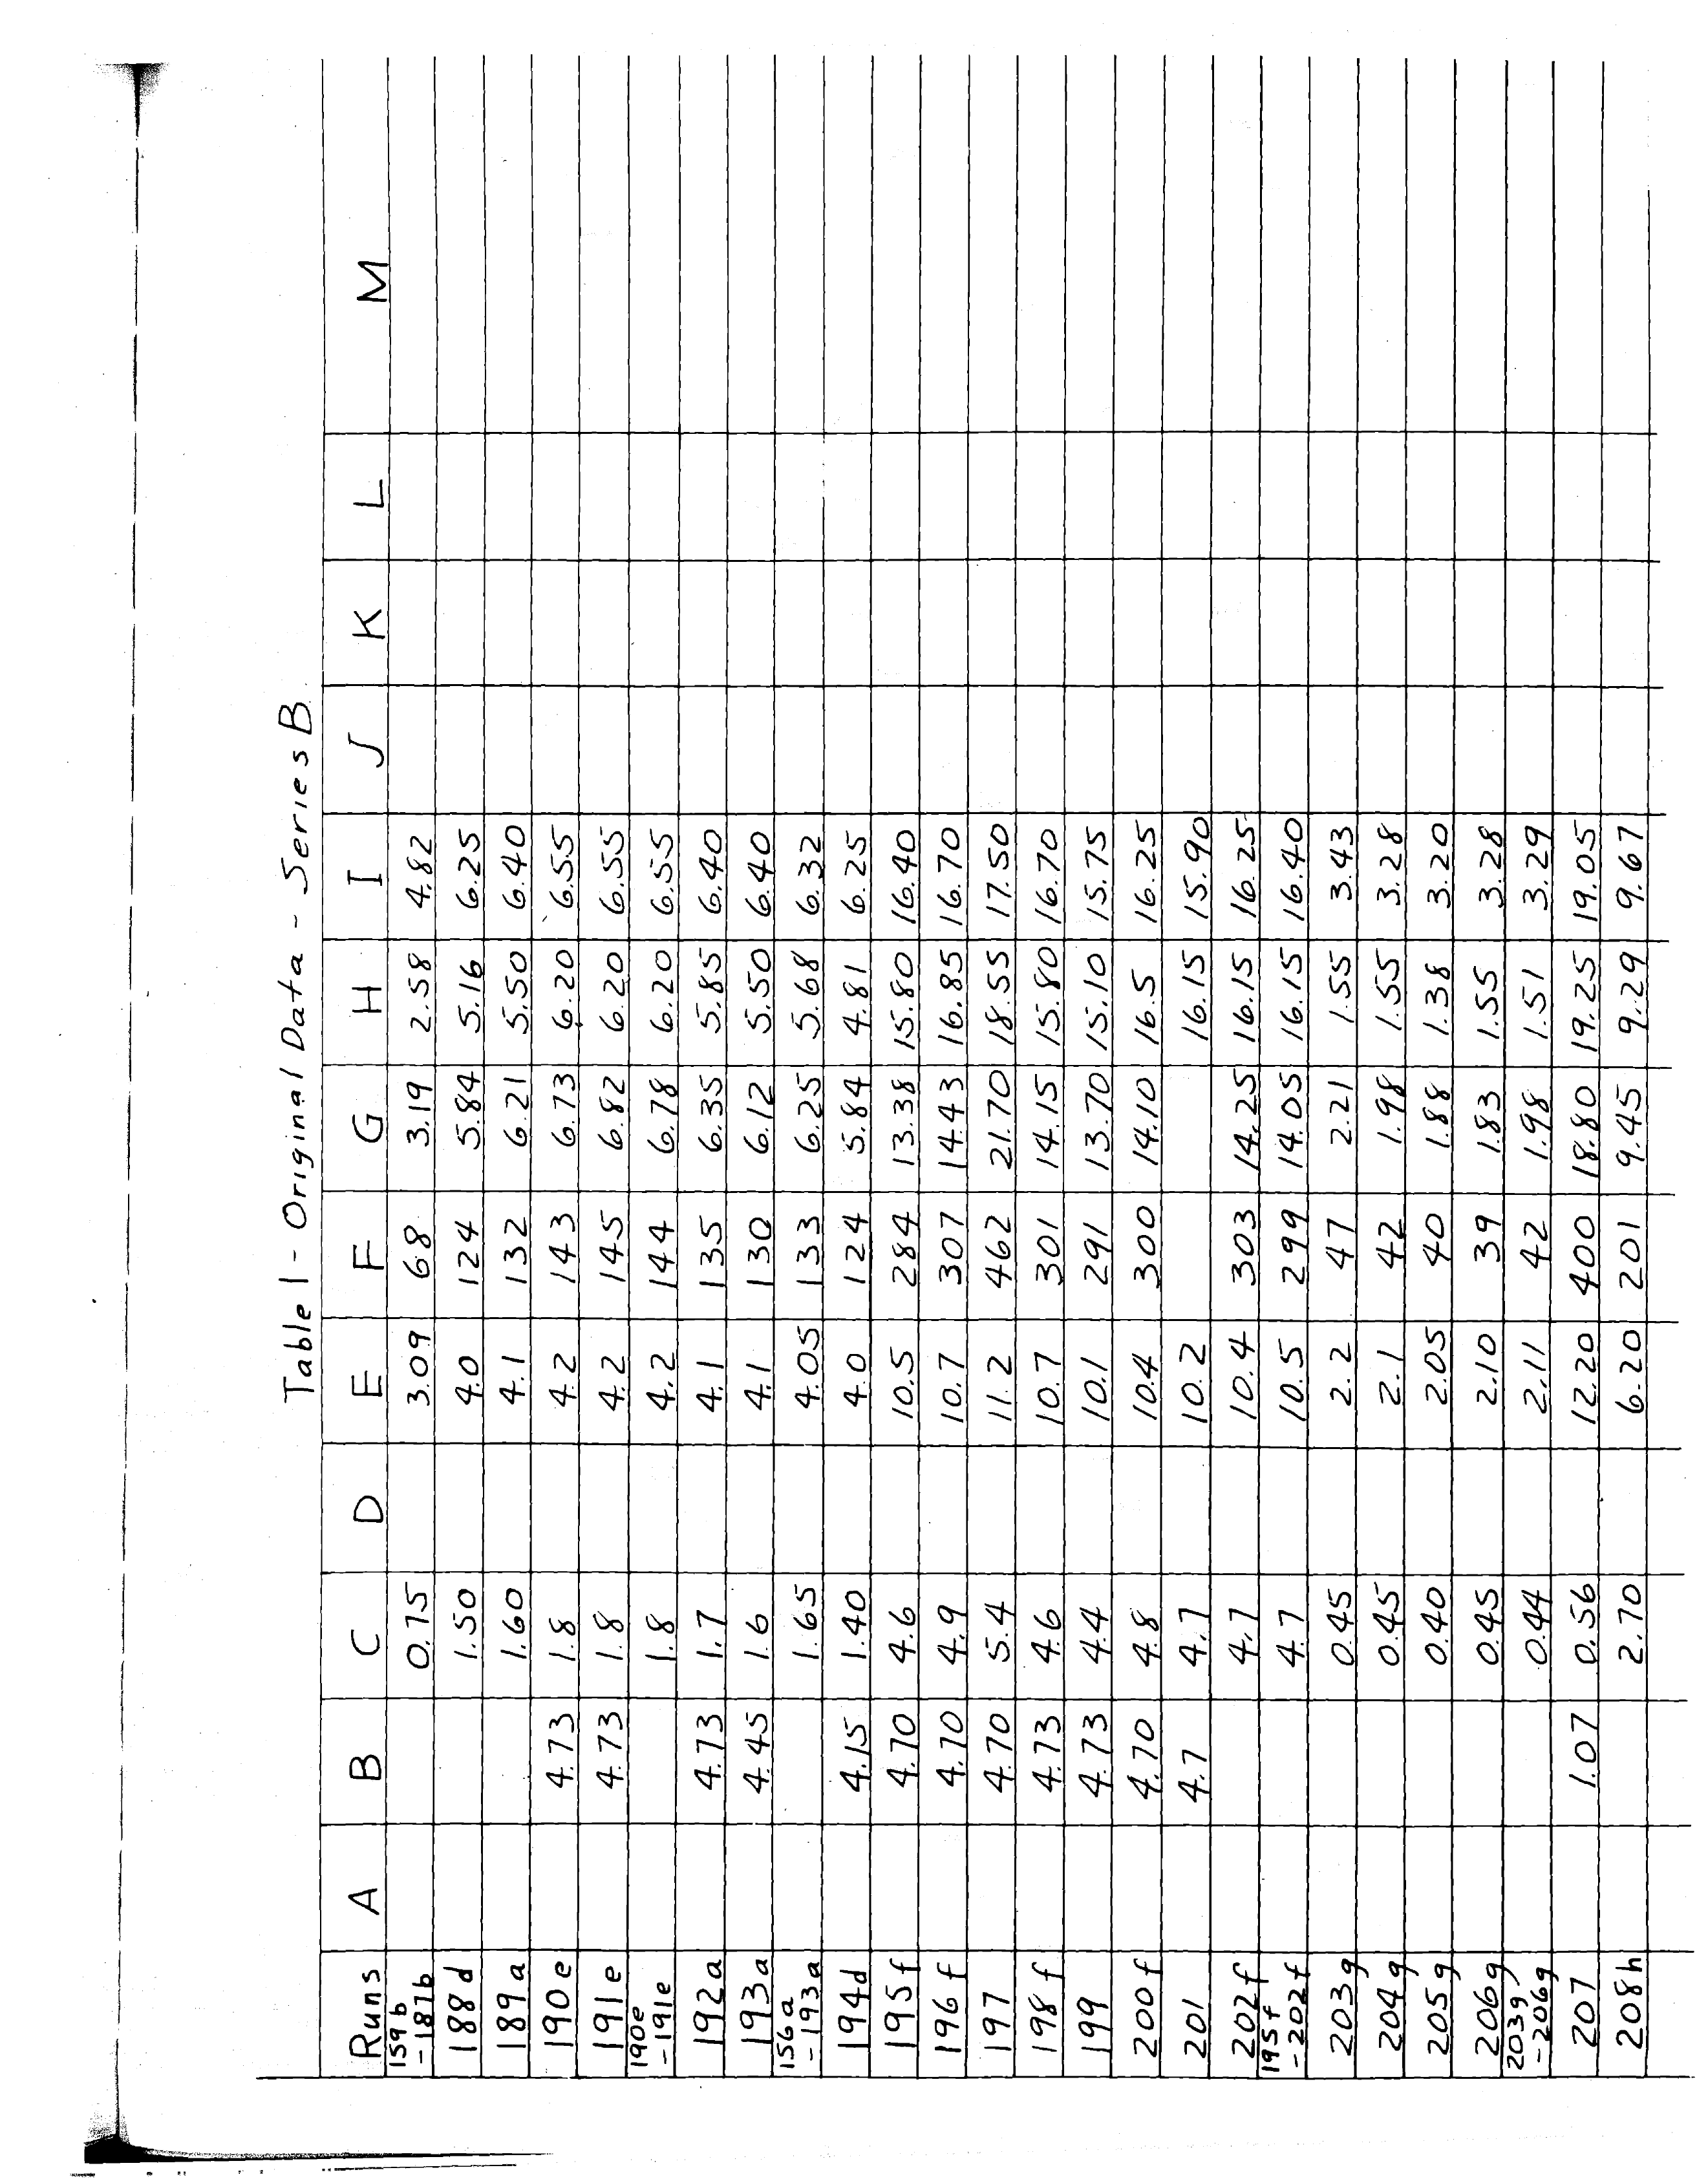 Table 1 - Original Data - Series B
Runs A B C D E F G H I J K L M
159 b - 187b 0.75 3.09 68 3.19 2.58 4.82
188 d 1.50 4.0 124 5.84 5.16 6.25
189 a 1.60 4.1 132 6.21 5.50 6.40
190 e 4.73 1.8 4.2 143 6.73 6.20 6.55
191 e 4.73 1.8 4.2 145 6.82 6.20 6.55
190e - 191e 1.8 4.2 144 6.78 6.20 6.55
192 a 4.73 1.7 4.1 135 6.35 5.85 6.40
193 a 4.45 1.6 4.1 130 6.12 5.50 6.40
156 a - 193 a 1.65 4.05 133 6.25 5.68 6.32
194 d 4.15 1.40 4.0 124 5.84 4.81 6.25
195 f 4.70 4.6 10.5 284 13.38 15.80 16.40
196 f 4.70 4.9 10.7 307 14.43 16.85 16.70
197 4.70 5.4 11.2 462 21.70 18.55 17.50
198 f 4.73 4.6 10.7 301 14.15 15.80 16.70
199 4.73 4.4 10.1 291 13.70 15.10 15.75
200 f 4.70 4.8 10.4 300 14.10 16.5 16.25
201 4.7 4.7 10.2 16.15 15.90
202 f 4.7 10.4 303 14.25 16.15 16.25
195 f - 202 f 4.7 10.5 299 14.05 16.15 16.40
203 g 0.45 2.2 47 2.21 1.55 3.43
204 g 0.45 2.1 42 1.98 1.55 3.28
205 g 0.40 2.05 40 1.88 1.38 3.20
206 g 0.45 2.10 39 1.83 1.55 3.28
203 g - 206g 0.44 2.11 42 1.98 1.51 3.29
207 1.07 0.56 12.20 400 18.80 19.25 19.05
208 h 2.70 6.20 201 9.45 9.29 9.67